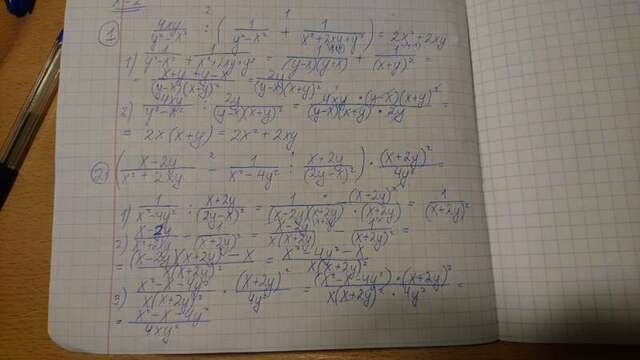 ① 4xy/(y²-x²) : (1/(y²-x²) + 1/(x²+2xy+y²)) = 2x²+2xy
1) 1/(y²-x²) + 1/(x²+2xy+y²) = 1/((y-x)(y+x)) + 1/(x+y)² =
= (x+y+y-x)/((y-x)(x+y)²) = 2y/((y-x)(x+y)²)
2) 4xy/(y²-x²) : 2y/((y-x)(x+y)²) = (4xy·(y-x)(x+y)²)/((y-x)(x+y)·2y) =
= 2x(x+y) = 2x²+2xy
② ((x-2y)/(x²+2xy) - 1/(x²-4y²) : (x+2y)/(2y-x)²) · (x+2y)²/4y² =
1) 1/(x²-4y²) : (x+2y)/(2y-x)² = (1·(x-2y)²)/((x-2y)(x+2y)·(x+2y)) = 1/(x+2y)²
2) (x-2y)/(x²+2xy) - 1/(x+2y)² = (x-2y)/(x(x+2y)) - 1/(x+2y)² =
= ((x-2y)(x+2y)-x)/(x(x+2y)²) = (x²-4y²-x)/(x(x+2y)²)
3) (x²-x-4y²)/(x(x+2y)²) · (x+2y)²/4y² = ((x²-x-4y²)·(x+2y)²)/(x(x+2y)²·4y²) =
= (x²-x-4y²)/4xy²